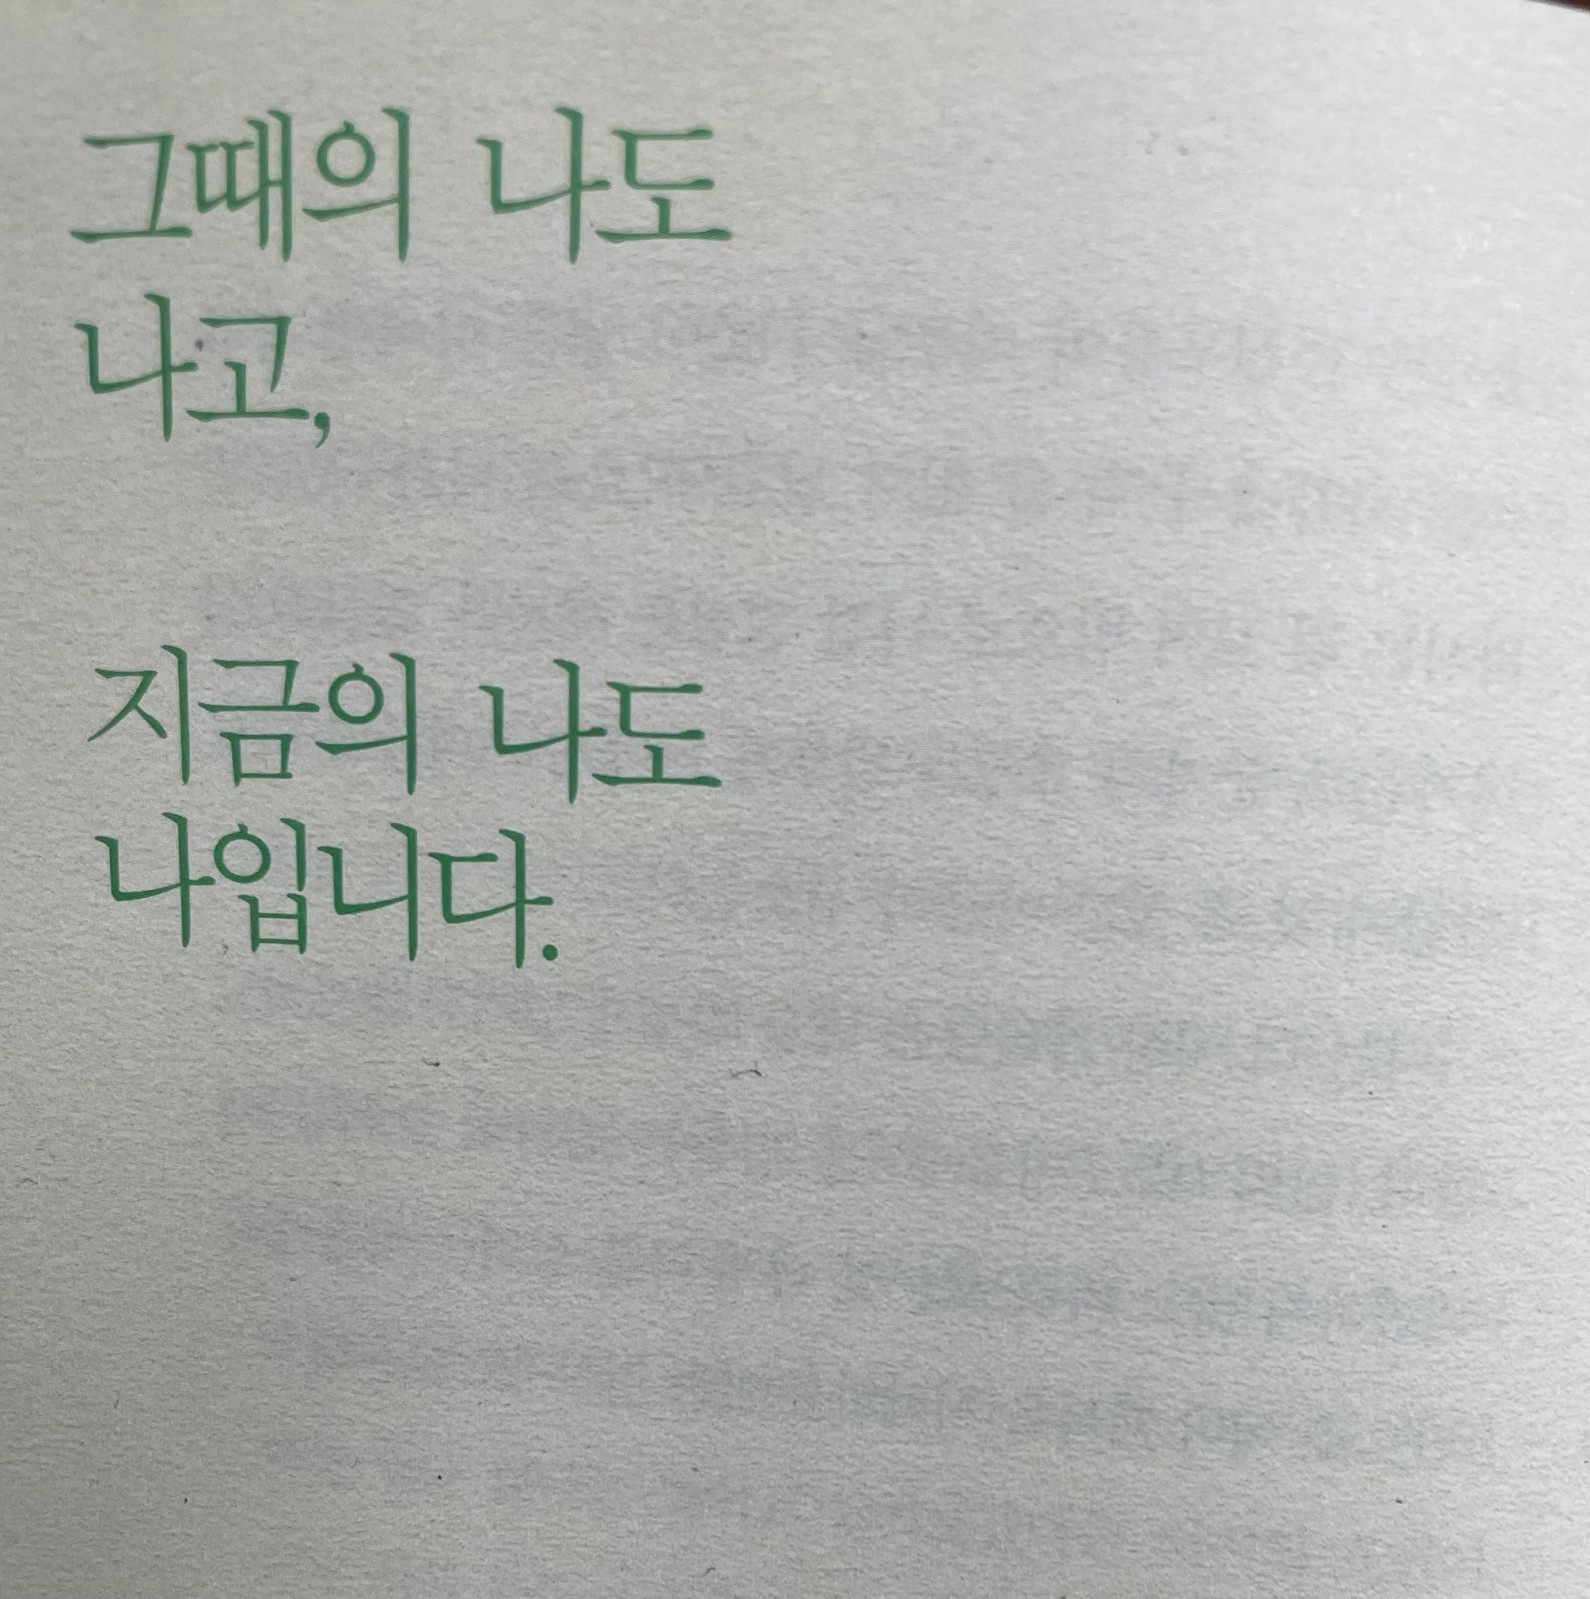 그때의 나도
나고,
지금의 나도
나입니다.